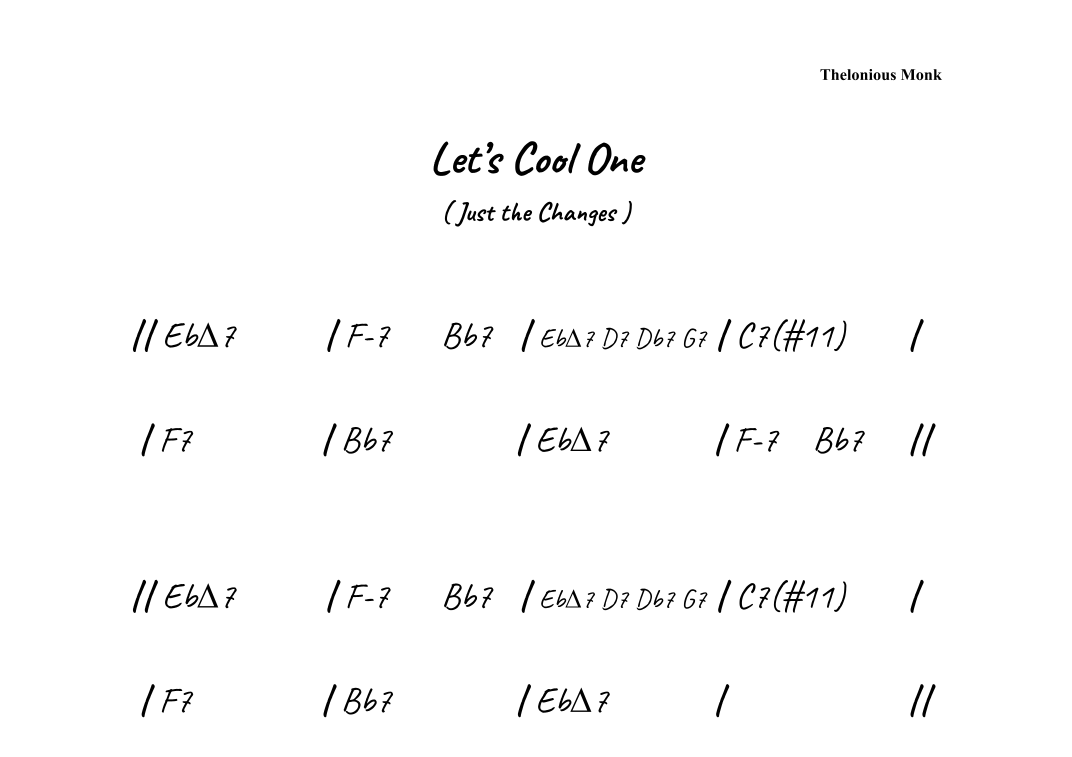 Thelonious Monk
Let's Cool One
( Just the Changes )
// Eb∆7 / F-7 Bb7 / Eb∆7 D7 Db7 G7 / C7(#11) /
/ F7 / Bb7 / Eb∆7 / F-7 Bb7 //
// Eb∆7 / F-7 Bb7 / Eb∆7 D7 Db7 G7 / C7(#11) /
/ F7 / Bb7 / Eb∆7 / //